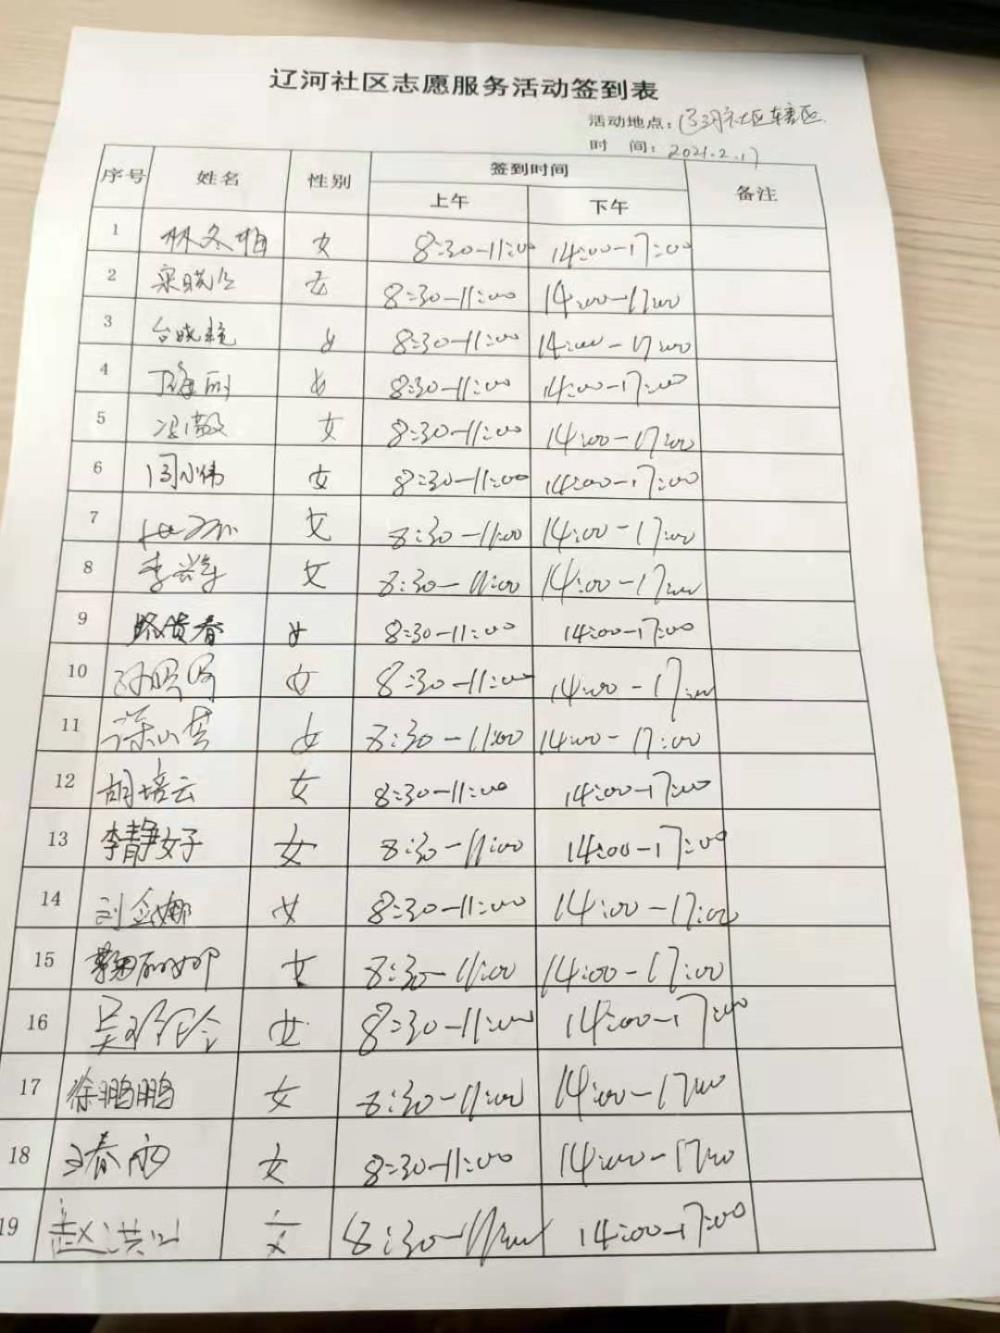 辽河社区志愿服务活动签到表
活动地点：辽河社区辖区
时 间：2021.2.17
序号 姓名 性别 签到时间 备注
上午 下午
1 林冬梅 女 8:30-11:00 14:00-17:00
2 女 8:30-11:00 14:00-17:00
3 台晓艳 女 8:30-11:00 14:00-17:00
4 女 8:30-11:00 14:00-17:00
5 冯敬 女 8:30-11:00 14:00-17:00
6 闫小伟 女 8:30-11:00 14:00-17:00
7 女 8:30-11:00 14:00-17:00
8 女 8:30-11:00 14:00-17:00
9 路贵春 女 8:30-11:00 14:00-17:00
10 女 8:30-11:00 14:00-17:00
11 女 8:30-11:00 14:00-17:00
12 胡培云 女 8:30-11:00 14:00-17:00
13 李静好 女 8:30-11:00 14:00-17:00
14 刘金娜 女 8:30-11:00 14:00-17:00
15 女 8:30-11:00 14:00-17:00
16 女 8:30-11:00 14:00-17:00
17 徐鹏鹏 女 8:30-11:00 14:00-17:00
18 王春雨 女 8:30-11:00 14:00-17:00
19 女 8:30-11:00 14:00-17:00